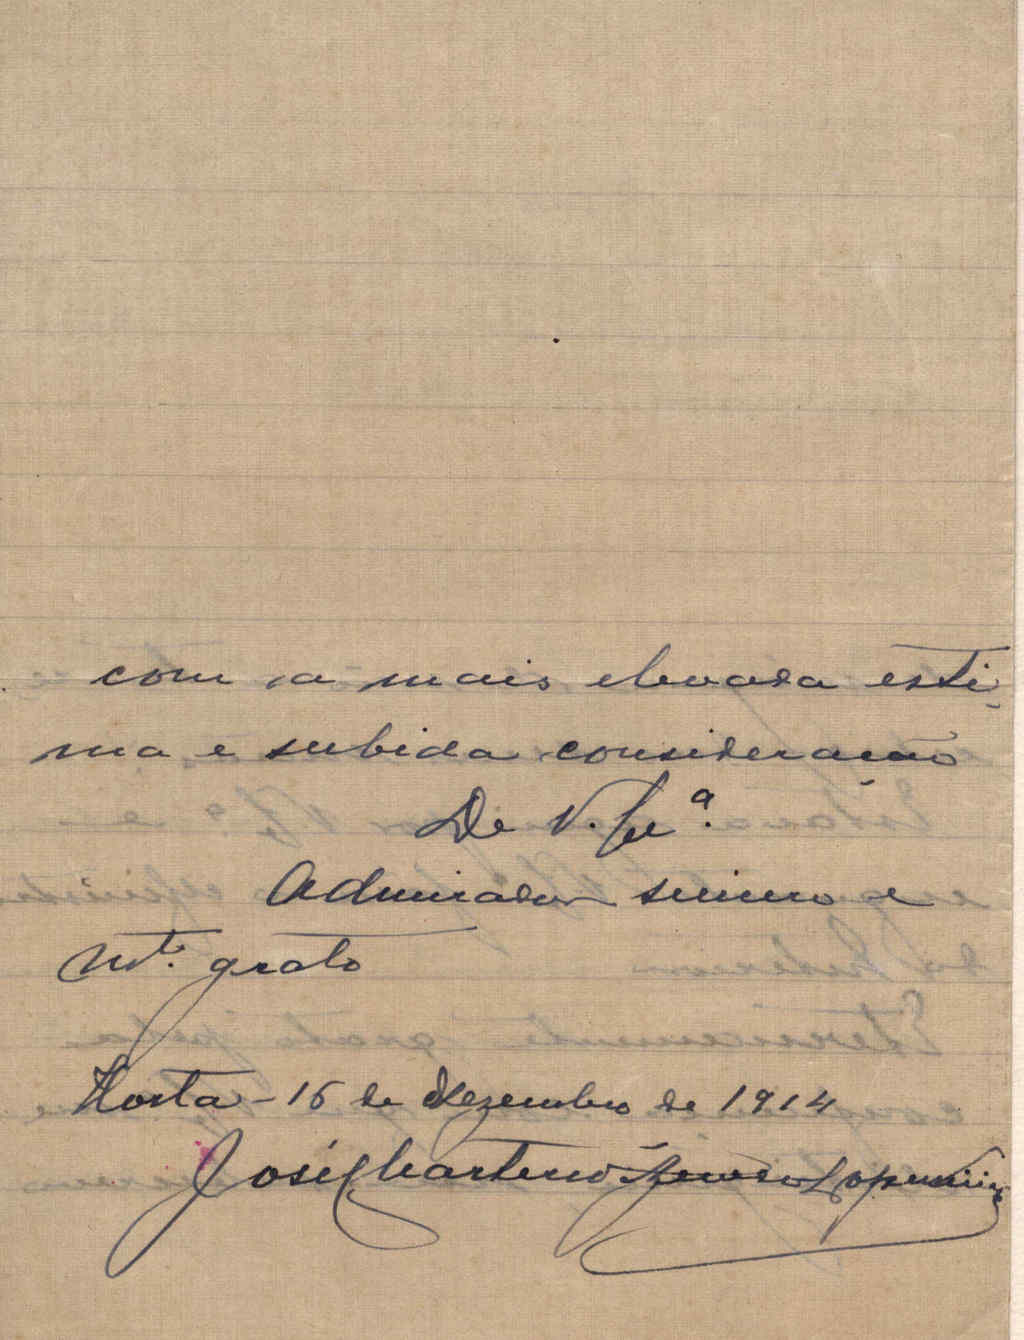 com a mais elevada esti-
ma e subida consideração
De V. Exª.
Admirador sincero e
Mt. grato
Horta - 16 de Dezembro de 1914
José